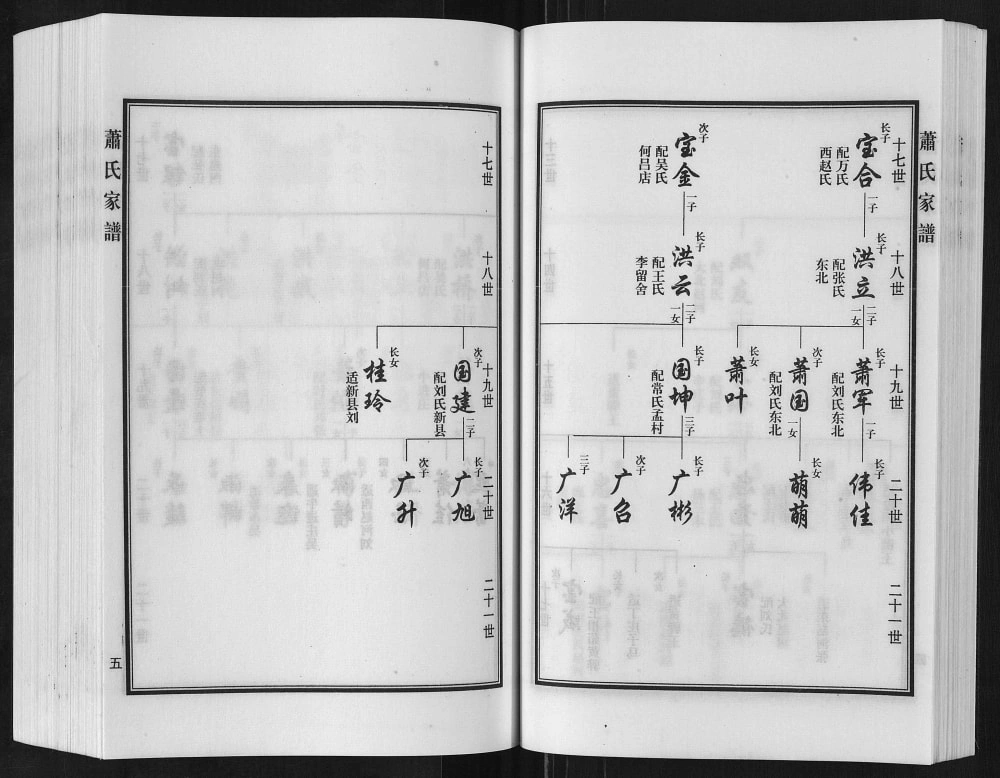 蕭氏家譜
十七世
长子
宝合
配万氏
西赵氏
一子
次子
宝金
配吴氏
何吕店
一子
十八世
长子
洪立
配张氏
东北
二子
一女
长子
洪云
配王氏
李留舍
二子
一女
十九世
长子
萧军
配刘氏东北
一子
次子
萧国
配刘氏东北
一女
长女
萧叶
长子
国坤
配常氏孟村
三子
二十世
长子
伟佳
长女
萌萌
长子
广彬
次子
广召
三子
广洋
二十一世
十七世
十八世
十九世
次子
国建
配刘氏新县
二子
长女
桂玲
适新县刘
二十世
长子
广旭
次子
广升
二十一世
蕭氏家譜
五